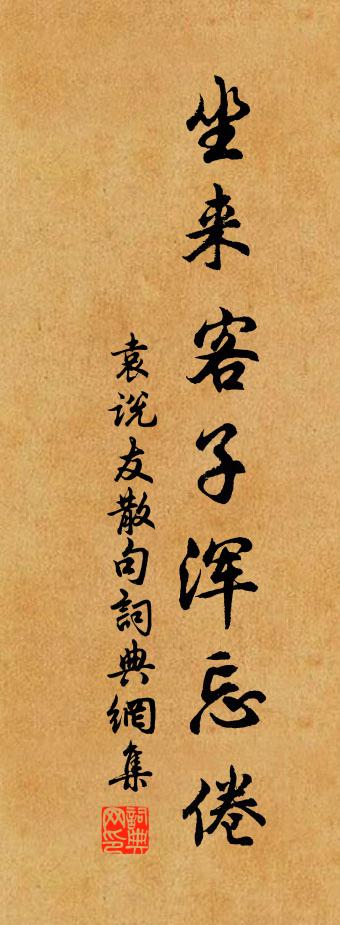 坐来客子浑忘倦
袁说友散句詞典網集
詞典网印